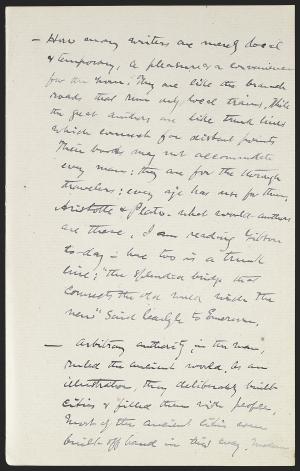 — How many writers are merely local
& temporary, a pleasure or a convenience
for the hour. They are like the branch
roads that run only local trains, while
the great authors are like trunk lines
which connect far distant points
Their books may not accommodate
every man; they are for the through
travelers; every age has use for them,
Aristotle & Plato. what world authors
are these. I am reading Gibbon
to-day – he too is a trunk
line; "the splendid bridge that
connects the old world with the
new" said Carlyle to Emerson.
— Arbitrary authority, in the man,
ruled the ancient world. As an
illustration, they deliberately built
cities & filled them with people,
Most of the ancient cities were
built off hand in this way. Modern